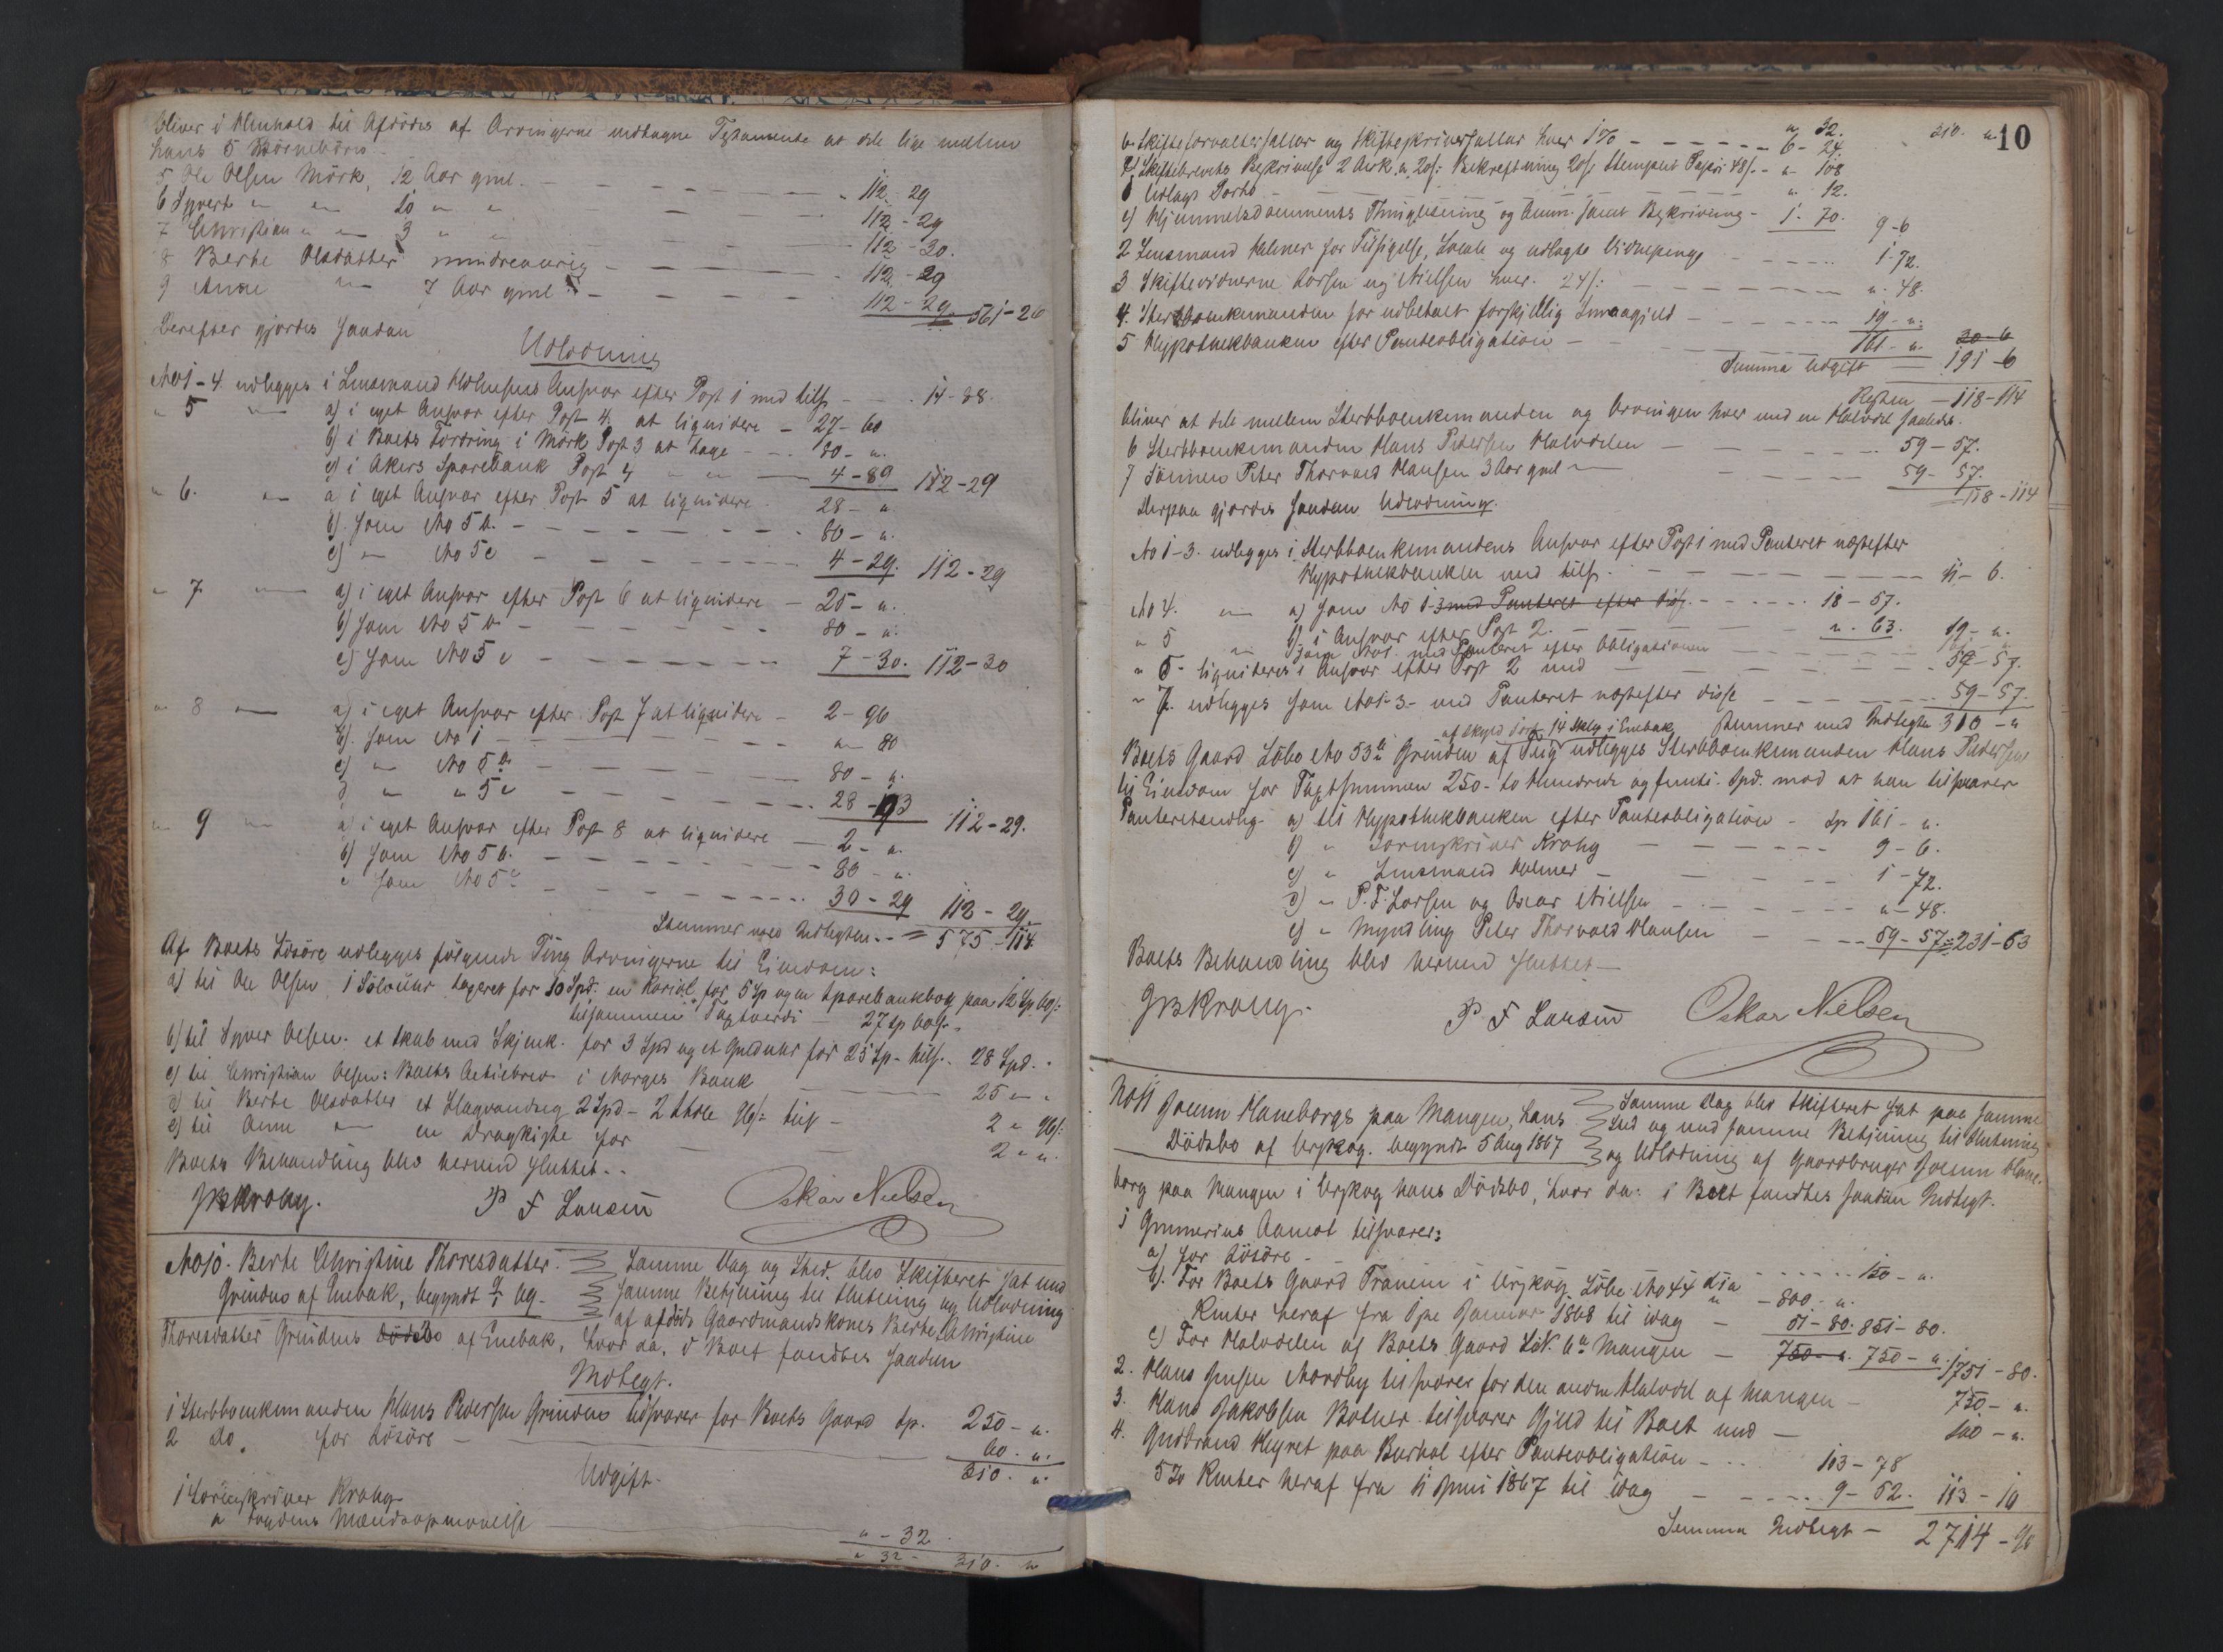 bliver i Henhold til Afdödes af Arvingerne vedtagne Testamente at dele lige mellem
hans 5 Börnebörn
5 Ole Olsen Mörk, 12 Aar gml. — 112 - 29
6 Syvert " " 10 " " — 112 - 29
7 Christian " " 3 " " — 112 - 30.
8 Berte Olsdatter mindreaarig — 112 - 29
9 Anne " 7 Aar gml — 112 - 29 561 - 26
Derefter gjordes saadan
Udlodning
No 1-4 udlegges i Lensmand Holmsens Ansvar efter Post 1 med tils. — 14 - 88.
" 5 " a) i eget Ansvar efter Post 4 at liqvidere — 27 - 60
b) i Boets Fordring i Mörk Post 3 at tage — 80 - ".
c) i Akers Sparebank Post 4 " — 4 - 89 112 - 29
" 6. " a) i eget Ansvar efter Post 5 at liqvidere 28 - ".
b). som No 5 b. — 80 - ".
c) " No 5 c — 4 - 29. 112 - 29
" 7 " a) i eget Ansvar efter Post 6 at liqvidere — 25 - ".
b) som No 5 b — 80 - ".
c) som No 5 c — 7 - 30. 112 - 30
" 8 " a) i eget Ansvar efter Post 7 at liqvidere — 2 - 96
b). som No 1 — " - 80
c) " No 5 b — 80 - ".
d " " 5 c — 28 - 93 112 - 29.
" 9 " a) i eget Ansvar efter Post 8 at liqvidere — 2 - ".
b) som No 5 b. — 80 - ".
c som No 5 c — 30 - 29 112 - 29.
Stemmer med Indtegten — 575 - 114
Af Boets Lösöre udlegges fölgende Ting Arvingerne til Eiendom:
a) til Ole Olsen 1 Sölvuhr taxeret for 10 Spd. en Kariol for 5 Sp og en Sparebankbog paa 12 Sp 60 s:
tilsammen Taxtværdi — 27 sp 60 s.
b) til Syver Olsen. et Skab med Skjenk. for 3 Spd og et Gulduhr for 25 Sp - tils. 28 Spd.
c) til Christian Olsen: Boets Actiebrev i Norges Bank — 25 " "
d) til Berte Olsdatter et Slagvandseg 2 Spd - 2 Stole 96 s: tils — 2 " 96 s:
e) til Anne " en Dragkiste for — 2 " ".
Boets Behandling blev hermed sluttet..
JB Krohg. P F Larsen Oskar Nielsen
No 10. Berte Christine Thoresdatter Samme Dag og Sted. blev Skifteret sat med
Grindens af Enebak, begyndt samme Betjening til Slutning og Udlodning
af afdöde Gaardmandskones Berte Christine
Thoresdatter Grindens Dödsbo af Enebak, hvor da, i Boet fandtes saadan
Indtegt.
1 Sterbboenkemanden Hans Pedersen Grindens tilsvarer for Boets Gaard Sp. 250 - ".
2 do. for Lösöre — 60. ".
310. ".
Udgift.
1 Sorenskriver Krohg
a Mændsopnævnelse — " - 32
" 32 - 310. "
10
" 32. 310. "
b Skifteforvaltersallar og Skifteskriversallar hver 1% — 6 - 24
c) Skiftebrevets Beskrivelse 2 Ark a. 20 s: Bekreftning 20 s: Stemplet Papir 48 s. - " 108
d Udlagt Porto — " 12.
e) Hjemmelsdocuments Thinglesning og Anm. samt Beskrivning - 1 - 70. 9 - 6
2 Lensmand Holmer for Tilsigelse, Locale og udlagte Vidnepenge — 1 - 72.
3 Skiftevidnerne Larsen og Nielsen hver. 24 s: — ". 48.
4. Sterbboenkemanden for udbetalt forskjellig Smaagjeld — 19 - ". 30 - 6
5 Hypothekbanken efter Panteobligation — 161 - ".
Summa Udgift — 191 - 6
Resten — 118 - 114
bliver at dele mellem Sterbboenkemanden og Arvingen hver med en Halvdel saaledes.
6 Sterbboenkemanden Hans Pedersen Halvdelen — 59 - 57.
7 Sönnen Peter Thorvald Hansen 3 Aar gml — 59 - 57.
118 - 114
Herpaa gjordes saadan Udlodning.
No 1-3. udlegges i Sterbboenkemandens Ansvar efter Post 1 med Panteret næstefter
Hypothekbanken med tils. — 11 - 6.
No 4. " a) som No 1-3 med Panteret efter disse — 18 - 57.
b) i Ansvar efter Post 2. — ". 63. 19 - ".
" 5 " som No 1. med Panteret efter Obligationen — 161 - ".
" 6 - liqvideres i Ansvar efter Post 2 med — 59 - 57.
" 7. udlegges som No 1-3 - med Panteret næstefter disse — 59 - 57.
Stemmer med Indtegten 310 - "
af Skyld 14 i Enebak
Boets Gaard Löbe No 53 Grinden af Teig udlegges Sterbboenkemanden Hans Pedersen
til Eiendom for Taxtsummen 250 - to Hundrede og femti - Spd. mod at han tilsvarer
Panteretsmæssig a) til Hypothekbanken efter Panteobligation - Sp 161 - ".
b) " Sorenskriver Krohg — 9 - 6.
c) " Lensmand Holmer — 1 - 72.
d) " P. F. Larsen og Oscar Nielsen — " - 48.
e) " Myndling Peter Thorvald Hansen — 59 - 57 = 231 - 63
Boets Behandling blev hermed sluttet —
JB Krohg. P F Larsen Oskar Nielsen
No 11 Joenn Haneborgs paa Mangen, hans Samme Dag blev Skifteret sat paa samme
Dödsbo af Urskog. begyndt 5 Aug 1867 Sted og med samme Betjening til Slutning
og Udlodning af Gaardbruger Joenn Hane-
borg paa Mangen i Urskog hans Dödsbo, hvor da: i Boet fandtes saadan Indtegt.
1 Gunnerius Aamot tilsvarer:
a) for Lösöre — 150 - ".
b). For Boets Gaard Tranem i Urskog Löbe No 44 — 800 - ".
Renter heraf fra Januar 1868 til idag — 51 - 80. 851 - 80.
c) For Halvdelen af Boets Gaard L.N. 6 Mangen — 750 - ". 750 - ". 1751 - 80.
2. Hans Jensen Nordby tilsvarer for den anden Halvdel af Mangen — 750 - ".
3. Hans Jakobsen Botner tilsvarer Gjeld til Boet med — 100 - ".
4. Gudbrand Heyret paa Burhol efter Panteobligation — 103 - 78
5 % Renter heraf fra 11 Juni 1867 til idag — 9 - 52. 113 - 10
Summa Indtegt — 2714 - 90